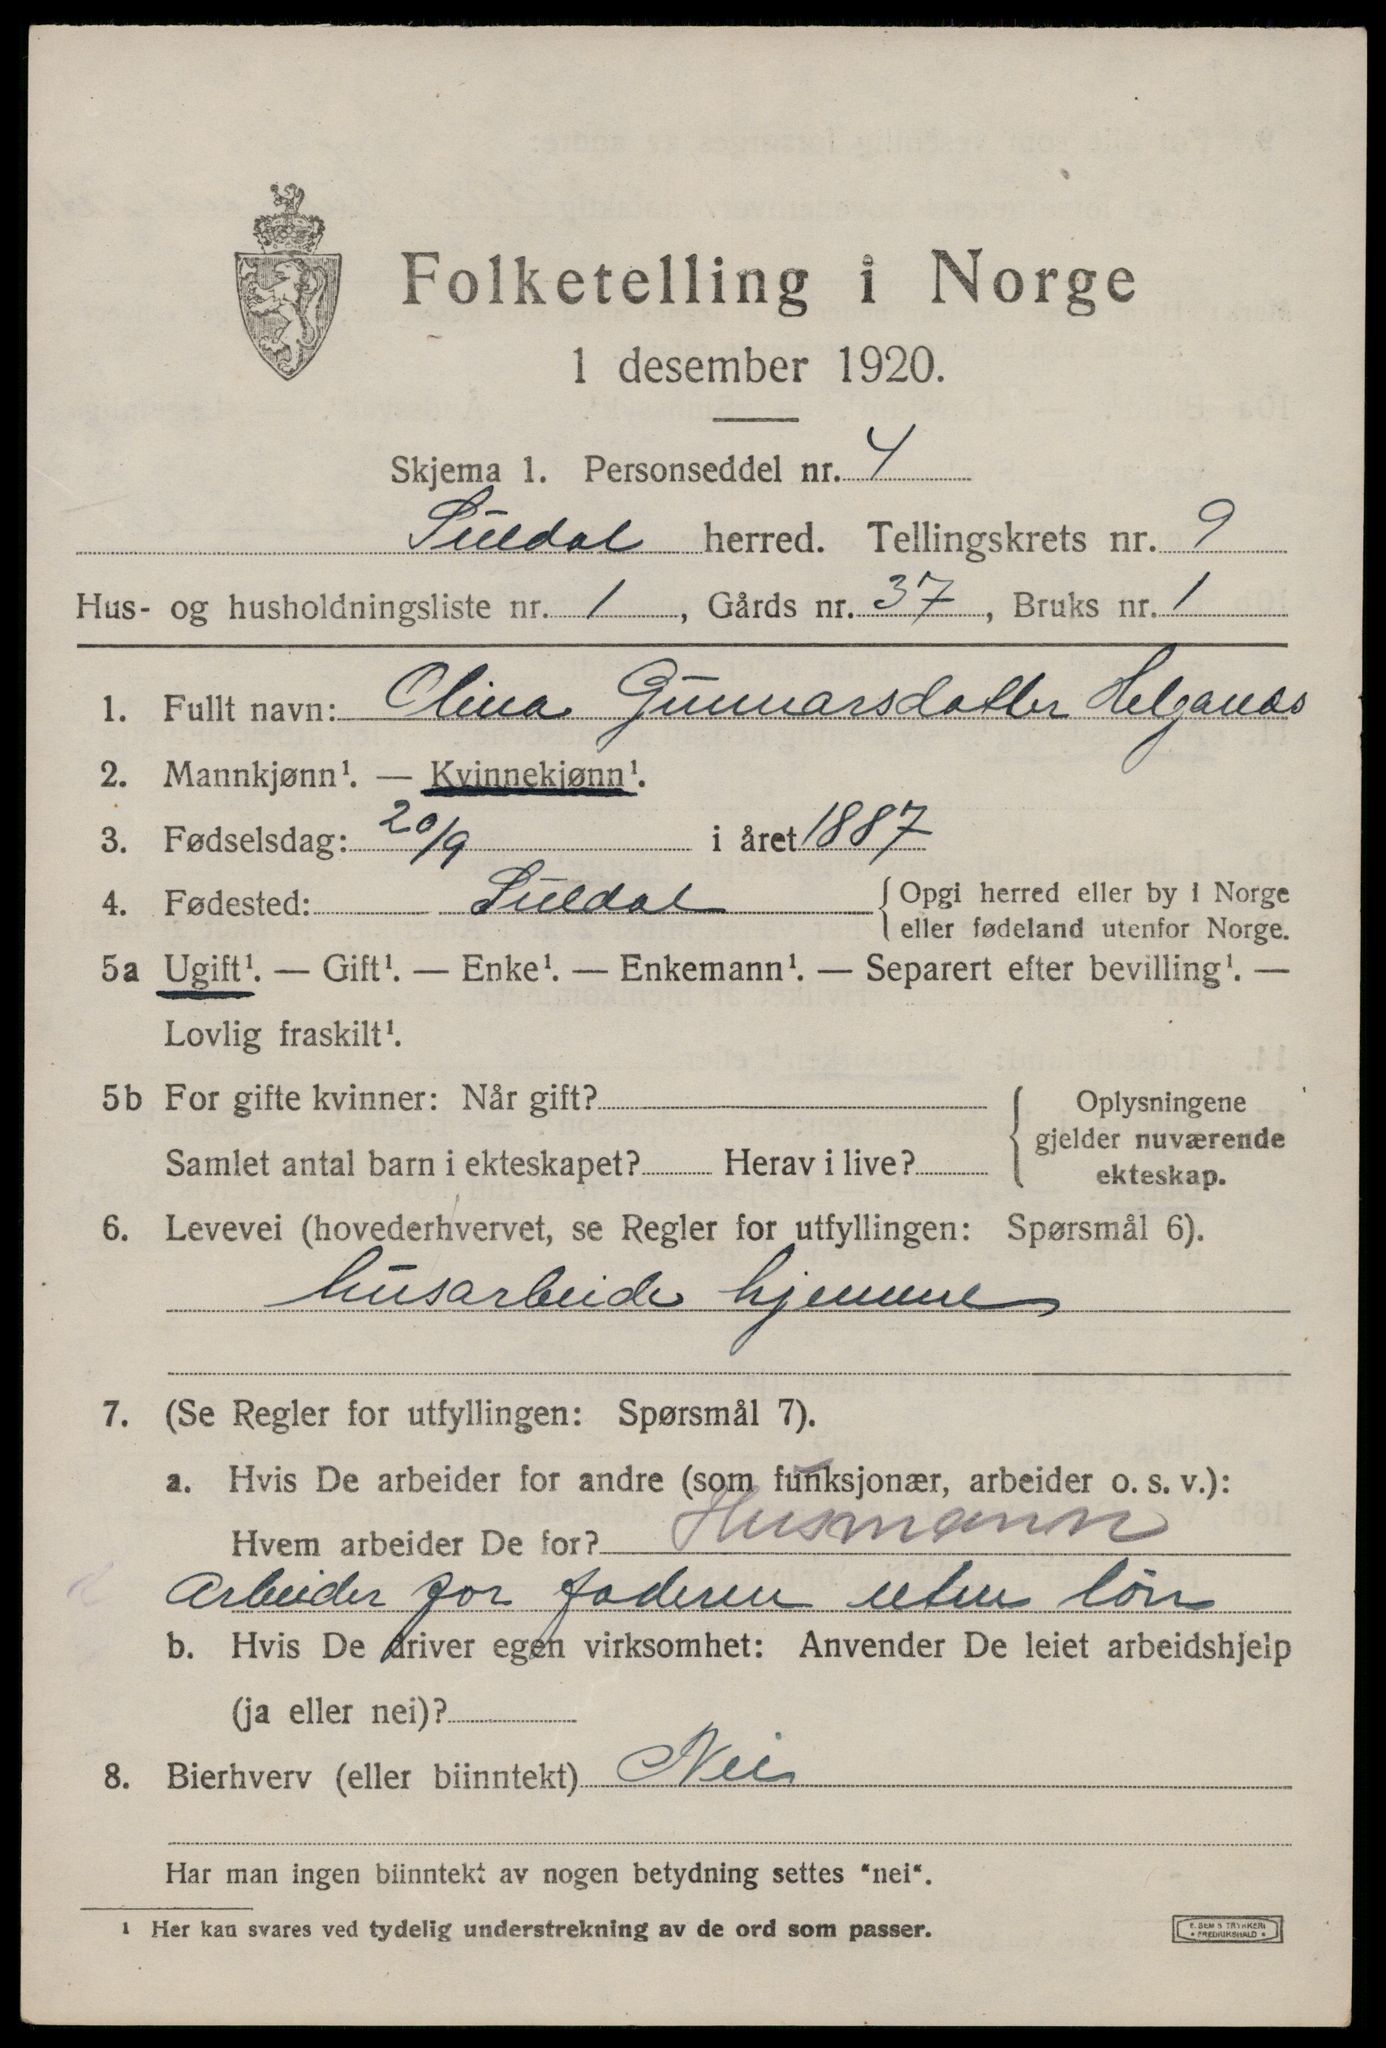 Folketelling i Norge
1 desember 1920.
Skjema 1. Personseddel nr. 4
Suldal herred. Tellingskrets nr. 9
Hus- og husholdningsliste nr. 1, Gårds nr. 37, Bruks nr. 1
1. Fullt navn: Olina Gunnarsdatter Helganes
2. Mannkjønn¹. — Kvinnekjønn¹.
3. Fødselsdag: 20/9 i året 1887
4. Fødested: Suldal { Opgi herred eller by i Norge
eller fødeland utenfor Norge.
5a Ugift¹. — Gift¹. — Enke¹. — Enkemann¹. — Separert efter bevilling¹. —
Lovlig fraskilt¹.
5b For gifte kvinner: Når gift?
Samlet antal barn i ekteskapet? Herav i live?
{ Oplysningene
gjelder nuværende
ekteskap.
6. Levevei (hovederhvervet, se Regler for utfyllingen: Spørsmål 6).
husarbeide hjemme
7. (Se Regler for utfyllingen: Spørsmål 7).
a. Hvis De arbeider for andre (som funksjonær, arbeider o. s. v.):
Hvem arbeider De for? Husmann
Arbeider for faderen uten lön
b. Hvis De driver egen virksomhet: Anvender De leiet arbeidshjelp
(ja eller nei)?
8. Bierhverv (eller biinntekt) Nei
Har man ingen biinntekt av nogen betydning settes "nei".
¹ Her kan svares ved tydelig understrekning av de ord som passer.
E. SEM'S TRYKKERI
* FREDRIKSHALD *